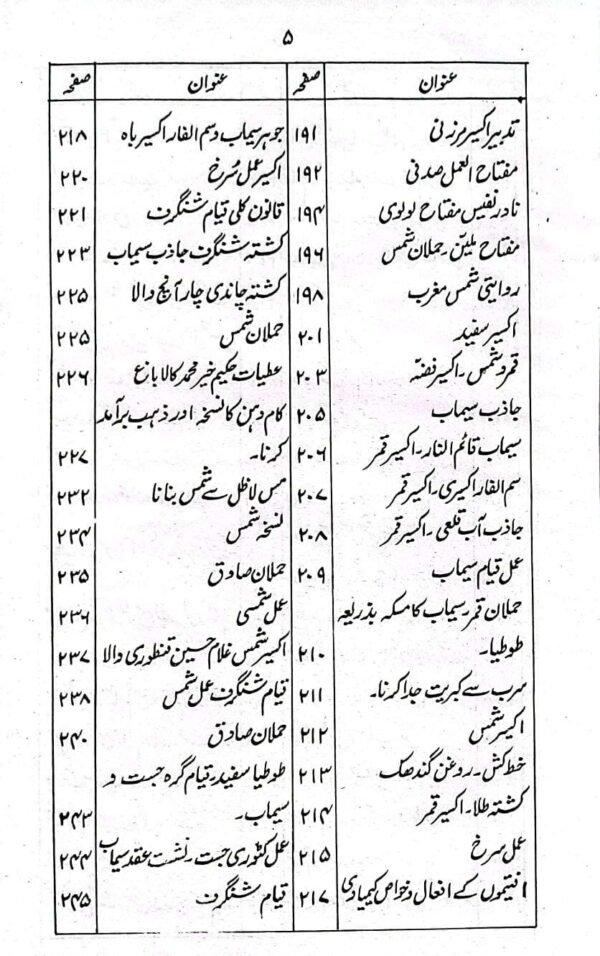 ۵
عنوان صفحہ
تدبیر اکسیر مزرنی ۱۹۱
مفتاح العمل صدفی ۱۹۲
نادر نفیس مفتاح لولوی ۱۹۴
مفتاح ملین۔حملان شمس ۱۹۶
روایتی شمس مغرب ۱۹۸
اکسیر سفید ۲۰۱
قمر و شمس۔اکسیر فضہ ۲۰۳
جاذب سیماب ۲۰۵
سیماب قائم النار۔اکسیر قمر ۲۰۶
سم الفار اکسیری۔اکسیر قمر ۲۰۷
جاذب آب قلعی۔اکسیر قمر ۲۰۸
عمل قیام سیماب ۲۰۹
حملان قمر سیماب کا مسکہ بذریعہ
طوطیا۔ ۲۱۰
سرب سے کبریت جدا کرنا۔ ۲۱۱
اکسیر شمس ۲۱۲
خط کش۔روغن گندھک ۲۱۳
کشتہ طلا۔اکسیر قمر ۲۱۴
عمل سرخ ۲۱۵
انتیموں کے افعال و خواص کیمیاوی ۲۱۷
عنوان صفحہ
جوہر سیماب و سم الفار اکسیر باہ ۲۱۸
اکسیر عمل سُرخ ۲۲۰
قانون کلی قیام شنگرف ۲۲۱
کشتہ شنگرف جاذب سیماب ۲۲۳
کشتہ چاندی چار آنچ والا ۲۲۵
حملان شمس ۲۲۵
عطیات حکیم خیر محمد کالا باغ ۲۲۶
کام دہن کا نسخہ اور ذہب برآمد
کرنا۔ ۲۲۷
مس لاظل سے شمس بنانا ۲۳۲
نسخہ شمس ۲۳۴
حملان صادق ۲۳۵
عمل شمسی ۲۳۶
اکسیر شمس غلام حسین قنطوری والا ۲۳۷
قیام شنگرف عمل شمس ۲۳۸
حملان صادق ۲۴۰
طوطیا سفید۔قیام گرہ جست و
سیماب۔ ۲۴۳
عمل کٹوری جست۔نشست عقد سیماب ۲۴۴
قیام شنگرف ۲۴۵